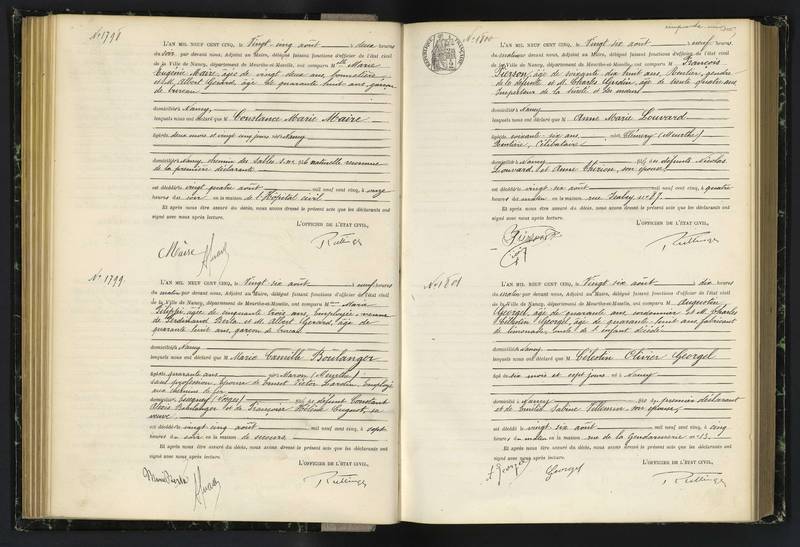 No 1798
L'AN MIL NEUF CENT CINQ, le Vingt cinq août à deux heures
du soir par devant nous, Adjoint au Maire, délégué faisant fonctions d'officier de l'état civil
de la Ville de Nancy, département de Meurthe-et-Moselle, ont comparu Mlle Marie
Eugénie Maire, âgée de vingt deux ans,
et M. Albert Gérard, âgé de quarante huit ans, garçon
de bureau
domiciliés Nancy,
lesquels nous ont déclaré que M Constance Marie Maire
âgée de deux mois et vingt cinq jours née Nancy
domiciliée Nancy, chemin des Sables naturelle reconnue
de la première déclarante
est décédée le vingt quatre août mil neuf cent cinq, à onze
heures du soir en la maison de l'Hôpital civil
Et après nous être assuré du décès, nous avons dressé le présent acte que les déclarants ont
signé avec nous après lecture.
L'OFFICIER DE L'ÉTAT CIVIL,
Maire
No 1799
L'AN MIL NEUF CENT CINQ, le Vingt six août à neuf heures
du matin par devant nous, Adjoint au Maire, délégué faisant fonctions d'officier de l'état civil
de la Ville de Nancy, département de Meurthe-et-Moselle, ont comparu Mme Marie
âgée de cinquante trois ans, Employée, veuve
de Ferdinand et M. Albert Gérard, âgé de
quarante huit ans, garçon de bureau
domiciliés Nancy
lesquels nous ont déclaré que M Marie Camille Boulanger
âgée de quarante ans née Maron (Meurthe)
sans profession, épouse de Ernest Victor employé
aux chemins de fer
domiciliée (Vosges) fille de défunt Constant
Alexis Boulanger et de Françoise Hélène sa
veuve
est décédée le vingt cinq août mil neuf cent cinq, à sept
heures du soir en la maison de secours
Et après nous être assuré du décès, nous avons dressé le présent acte que les déclarants ont
signé avec nous après lecture.
L'OFFICIER DE L'ÉTAT CIVIL,
No 1800
L'AN MIL NEUF CENT CINQ, le Vingt six août à neuf heures
du matin par devant nous, Adjoint au Maire, délégué faisant fonctions d'officier de l'état civil
de la Ville de Nancy, département de Meurthe-et-Moselle, ont comparu M François
Pierson, âgé de soixante dix huit ans, Rentier,
de la défunte et M. Charles âgé de trente quatre ans
Inspecteur de la sûreté
domiciliés Nancy
lesquels nous ont déclaré que M Anne Marie Louvard
âgée de soixante-six ans née (Meurthe)
Rentière, Célibataire
domiciliée à Nancy fille des défunts Nicolas
Louvard et Anne son épouse
est décédée le vingt six août mil neuf cent cinq, à quatre
heures du matin en la maison rue Isabey no 87.
Et après nous être assuré du décès, nous avons dressé le présent acte que les déclarants ont
signé avec nous après lecture.
L'OFFICIER DE L'ÉTAT CIVIL,
Pierson
No 1801
L'AN MIL NEUF CENT CINQ, le Vingt six août à dix heures
du matin par devant nous, Adjoint au Maire, délégué faisant fonctions d'officier de l'état civil
de la Ville de Nancy, département de Meurthe-et-Moselle, ont comparu M Augustin
Georgel, âgé de quarante ans cordonnier et M. Charles
Célestin Georgel, âgé de quarante huit ans, fabricant
de limonades, oncle de l'enfant décédé
domiciliés Nancy
lesquels nous ont déclaré que M Célestin Olivier Georgel
âgé de six mois et sept jours né Nancy
domicilié à Nancy fils du premier déclarant
et de Sabine son épouse,
est décédé le vingt six août mil neuf cent cinq, à cinq
heures du matin en la maison rue de la Gendarmerie no 13.
Et après nous être assuré du décès, nous avons dressé le présent acte que les déclarants ont
signé avec nous après lecture.
L'OFFICIER DE L'ÉTAT CIVIL,
Georgel